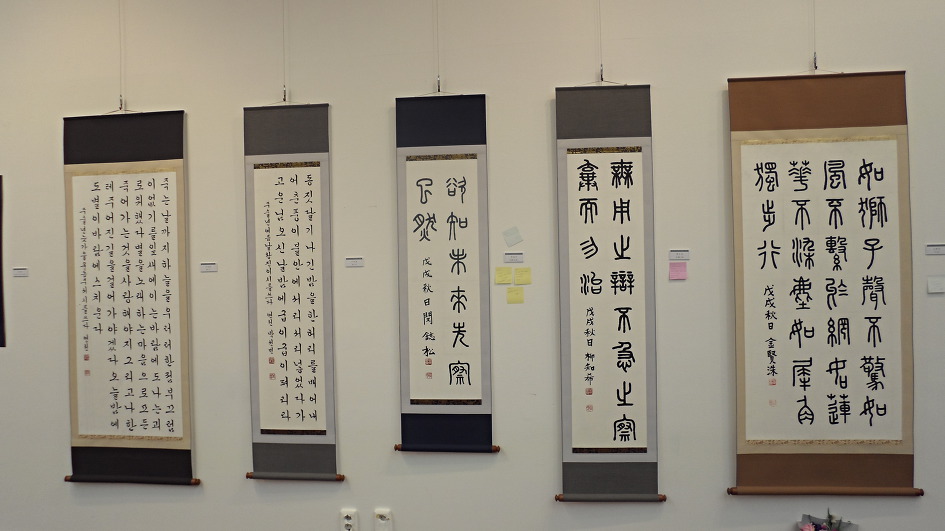 죽는날까지하늘을우러러한점부끄럼
이없기를잎새에이는바람에도나는괴
로워했다별을노래하는마음으로모든
죽어가는것을사랑해야지그리고나한
테주어진길을걸어가야겠다오늘밤에
도별이바람에스치운다
동짓달기나긴밤을한허리를베어내
어춘풍이불안에서리서리넣었다가
고운님오신날밤에굽이굽이펴리라
欲知未來先察
已然
戊戌秋日閔鋕松
無用之辯不急之察
棄而勿治
戊戌秋日柳知希
如獅子聲不驚如
風不繫於網如蓮
華不染塵如犀角
獨步行
戊戌秋日金賢洙